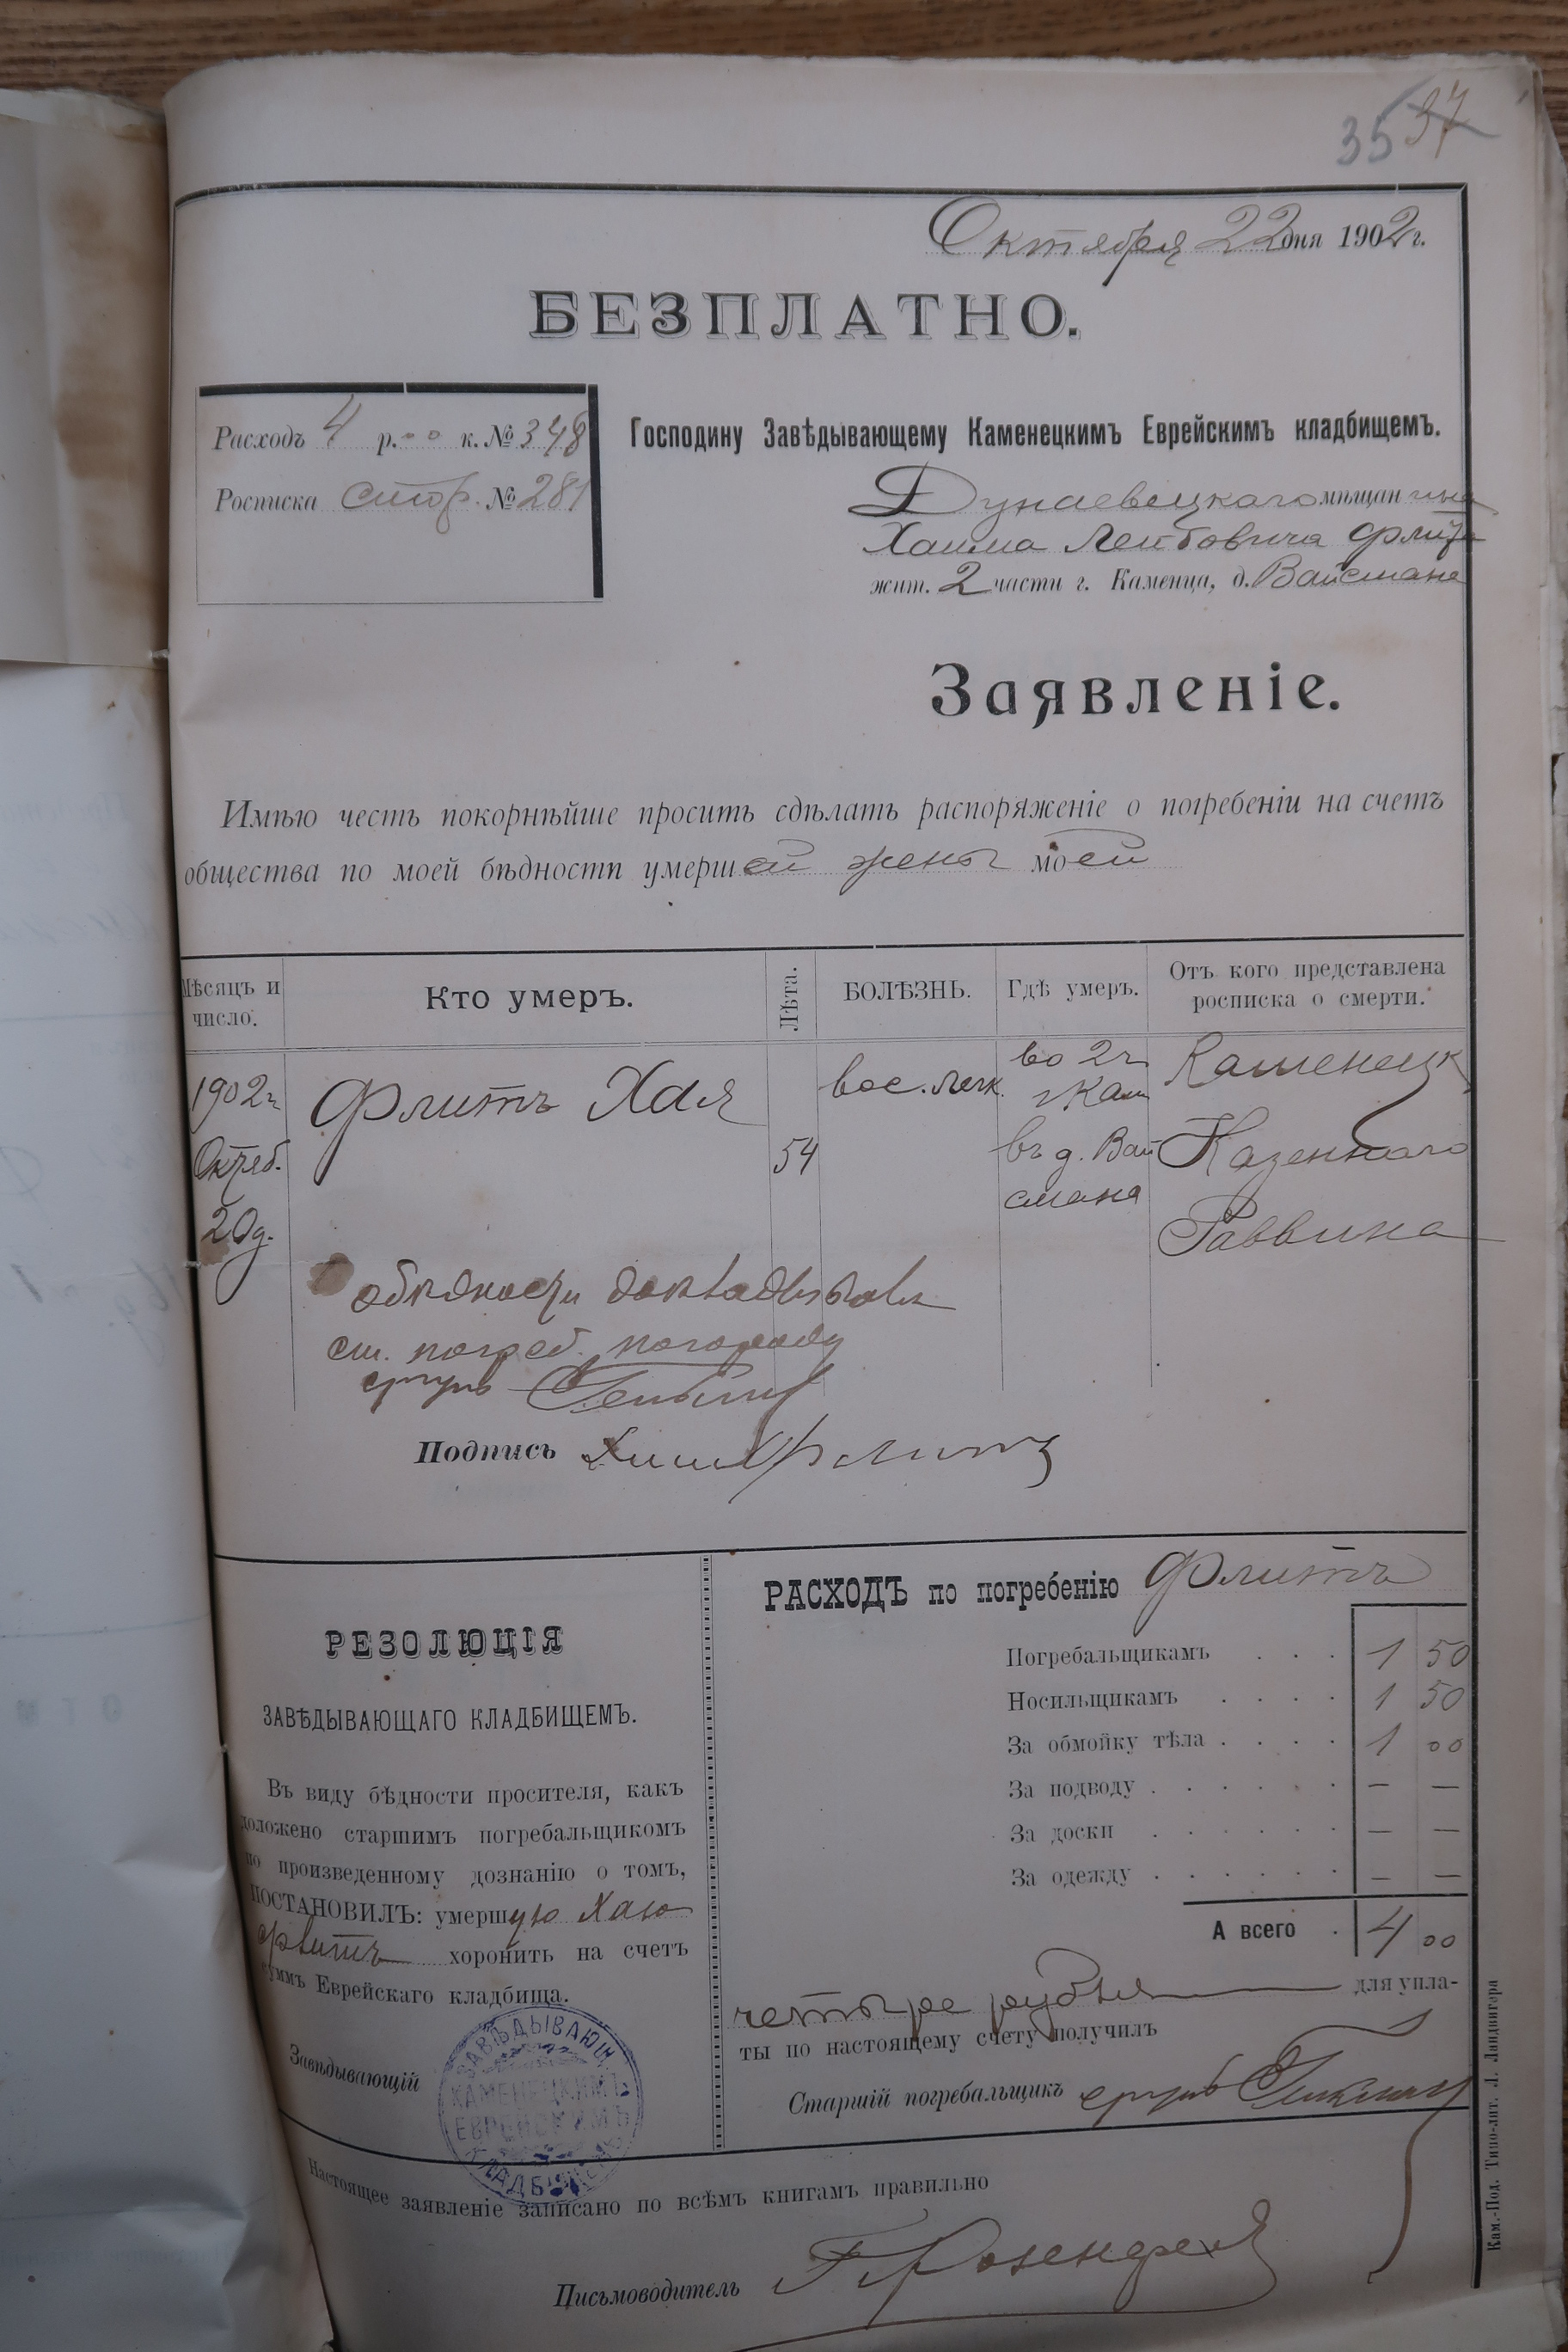 35 37
Октября 22 дня 1902 г.
БЕЗПЛАТНО.
Расходъ 4 р. 00 к. № 348
Росписка стор. № 281
Господину Завѣдывающему Каменецкимъ Еврейскимъ кладбищемъ.
Дунаевецкаго мѣщанина
Хаима Лейбовича Флита
жит. 2 части г. Каменца, д. Вайсмана
Заявленіе.
Имѣю честь покорнѣйше просить сдѣлать распоряженіе о погребеніи на счетъ
общества по моей бѣдности умершей жены моей
Мѣсяцъ и число.
Кто умеръ.
Лѣта.
БОЛѢЗНЬ.
Гдѣ умеръ.
Отъ кого представлена росписка о смерти.
1902 г.
Октяб.
20 д.
Флитъ Хая
54
вос. легк.
во 2 ч.
г. Кам
въ д. Вай
смана
Каменецк
Казеннаго
Раввина
о бѣдности докладывалъ
ст. погреб.
Подпись Хаим Флитъ
РЕЗОЛЮЦІЯ
ЗАВѢДЫВАЮЩАГО КЛАДБИЩЕМЪ.
Въ виду бѣдности просителя, какъ
доложено старшимъ погребальщикомъ
по произведенному дознанію о томъ,
ПОСТАНОВИЛЪ: умершую Хаю
Флитъ хоронить на счетъ
суммъ Еврейскаго кладбища.
Завѣдывающій
ЗАВѢДЫВАЮЩ.
КАМЕНЕЦКИМЪ
ЕВРЕЙСКИМЪ
КЛАДБИЩЕМЪ
РАСХОДЪ по погребенію Флитъ
Погребальщикамъ . . . 1 50
Носильщикамъ . . . . 1 50
За обмойку тѣла . . . . 1 00
За подводу . . . . . . — —
За доски . . . . . . — —
За одежду . . . . . . — —
А всего . 4 00
четыре рубля для упла-
ты по настоящему счету получилъ
Старшій погребальщикъ
Настоящее заявленіе записано по всѣмъ книгамъ правильно
Письмоводитель Г Розенфельд
Кам.-Под. Типо-лит. Л. Ландвигера